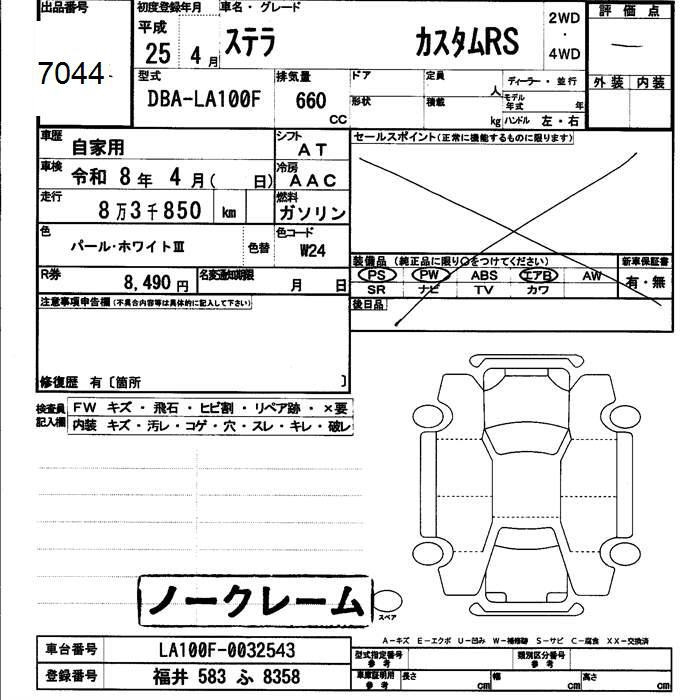 出品番号 初度登録年月 車名・グレード 2WD・4WD 評価点
7044 平成 25 4月 ステラ カスタムRS —
型式 排気量 ドア 定員 人 ディーラー・並行 外装 内装
DBA-LA100F 660 CC 形状 積載 kg モデル年式 年 ハンドル 左・右
車歴 自家用 シフト AT セールスポイント(正常に機能するものに限ります)
車検 令和 8年 4月( 日) 冷房 AAC
走行 8万3千850 km 燃料 ガソリン
色 パール・ホワイトIII 色替 色コード W24
装備品 (純正品に限り○をつけてください) 新車保証書
R券 8,490円 名変通知期限 月 日 PS PW ABS エアB AW 有・無
SR ナビ TV カワ
注意事項申告欄(不具合内容等は具体的に記入して下さい) 後日品
修復歴 有〔箇所 〕
検査員記入欄 FW キズ・飛石・ヒビ割・リペア跡・×要
内装 キズ・汚レ・コゲ・穴・スレ・キレ・破レ
ノークレーム
スペア
A-キズ E-エクボ U-凹み W-補修跡 S-サビ C-腐食 XX-交換済
車台番号 LA100F-0032543 型式指定番号 参考 類別区分番号 参考
登録番号 福井 583 ふ 8358 車庫証明用 参考 長さ cm 幅 cm 高さ cm